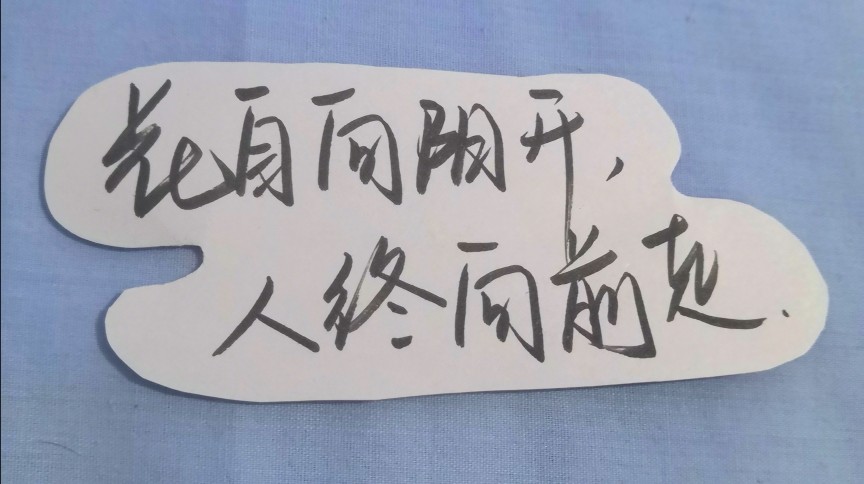 花自向阳开，
人终向前走.